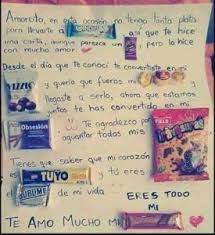 Amorcito, en esta ocasión no tengo tanta plata
para llevarte a así que te hice
una carta, aunque parezca un pero la hice
con mucho amor.
Desde el día que te conocí te convertiste en mi
y quería que fueras mi
llegaste a serlo, ahora que estamos
juntos te has convertido en mi
Obsesión
Te agradezco por
aguantar todos mis
Tienes que saber que mi corazón
es TUYO y tú eres
SUBLIME de mi vida
ERES TODO
MI
TE AMO MUCHO MI